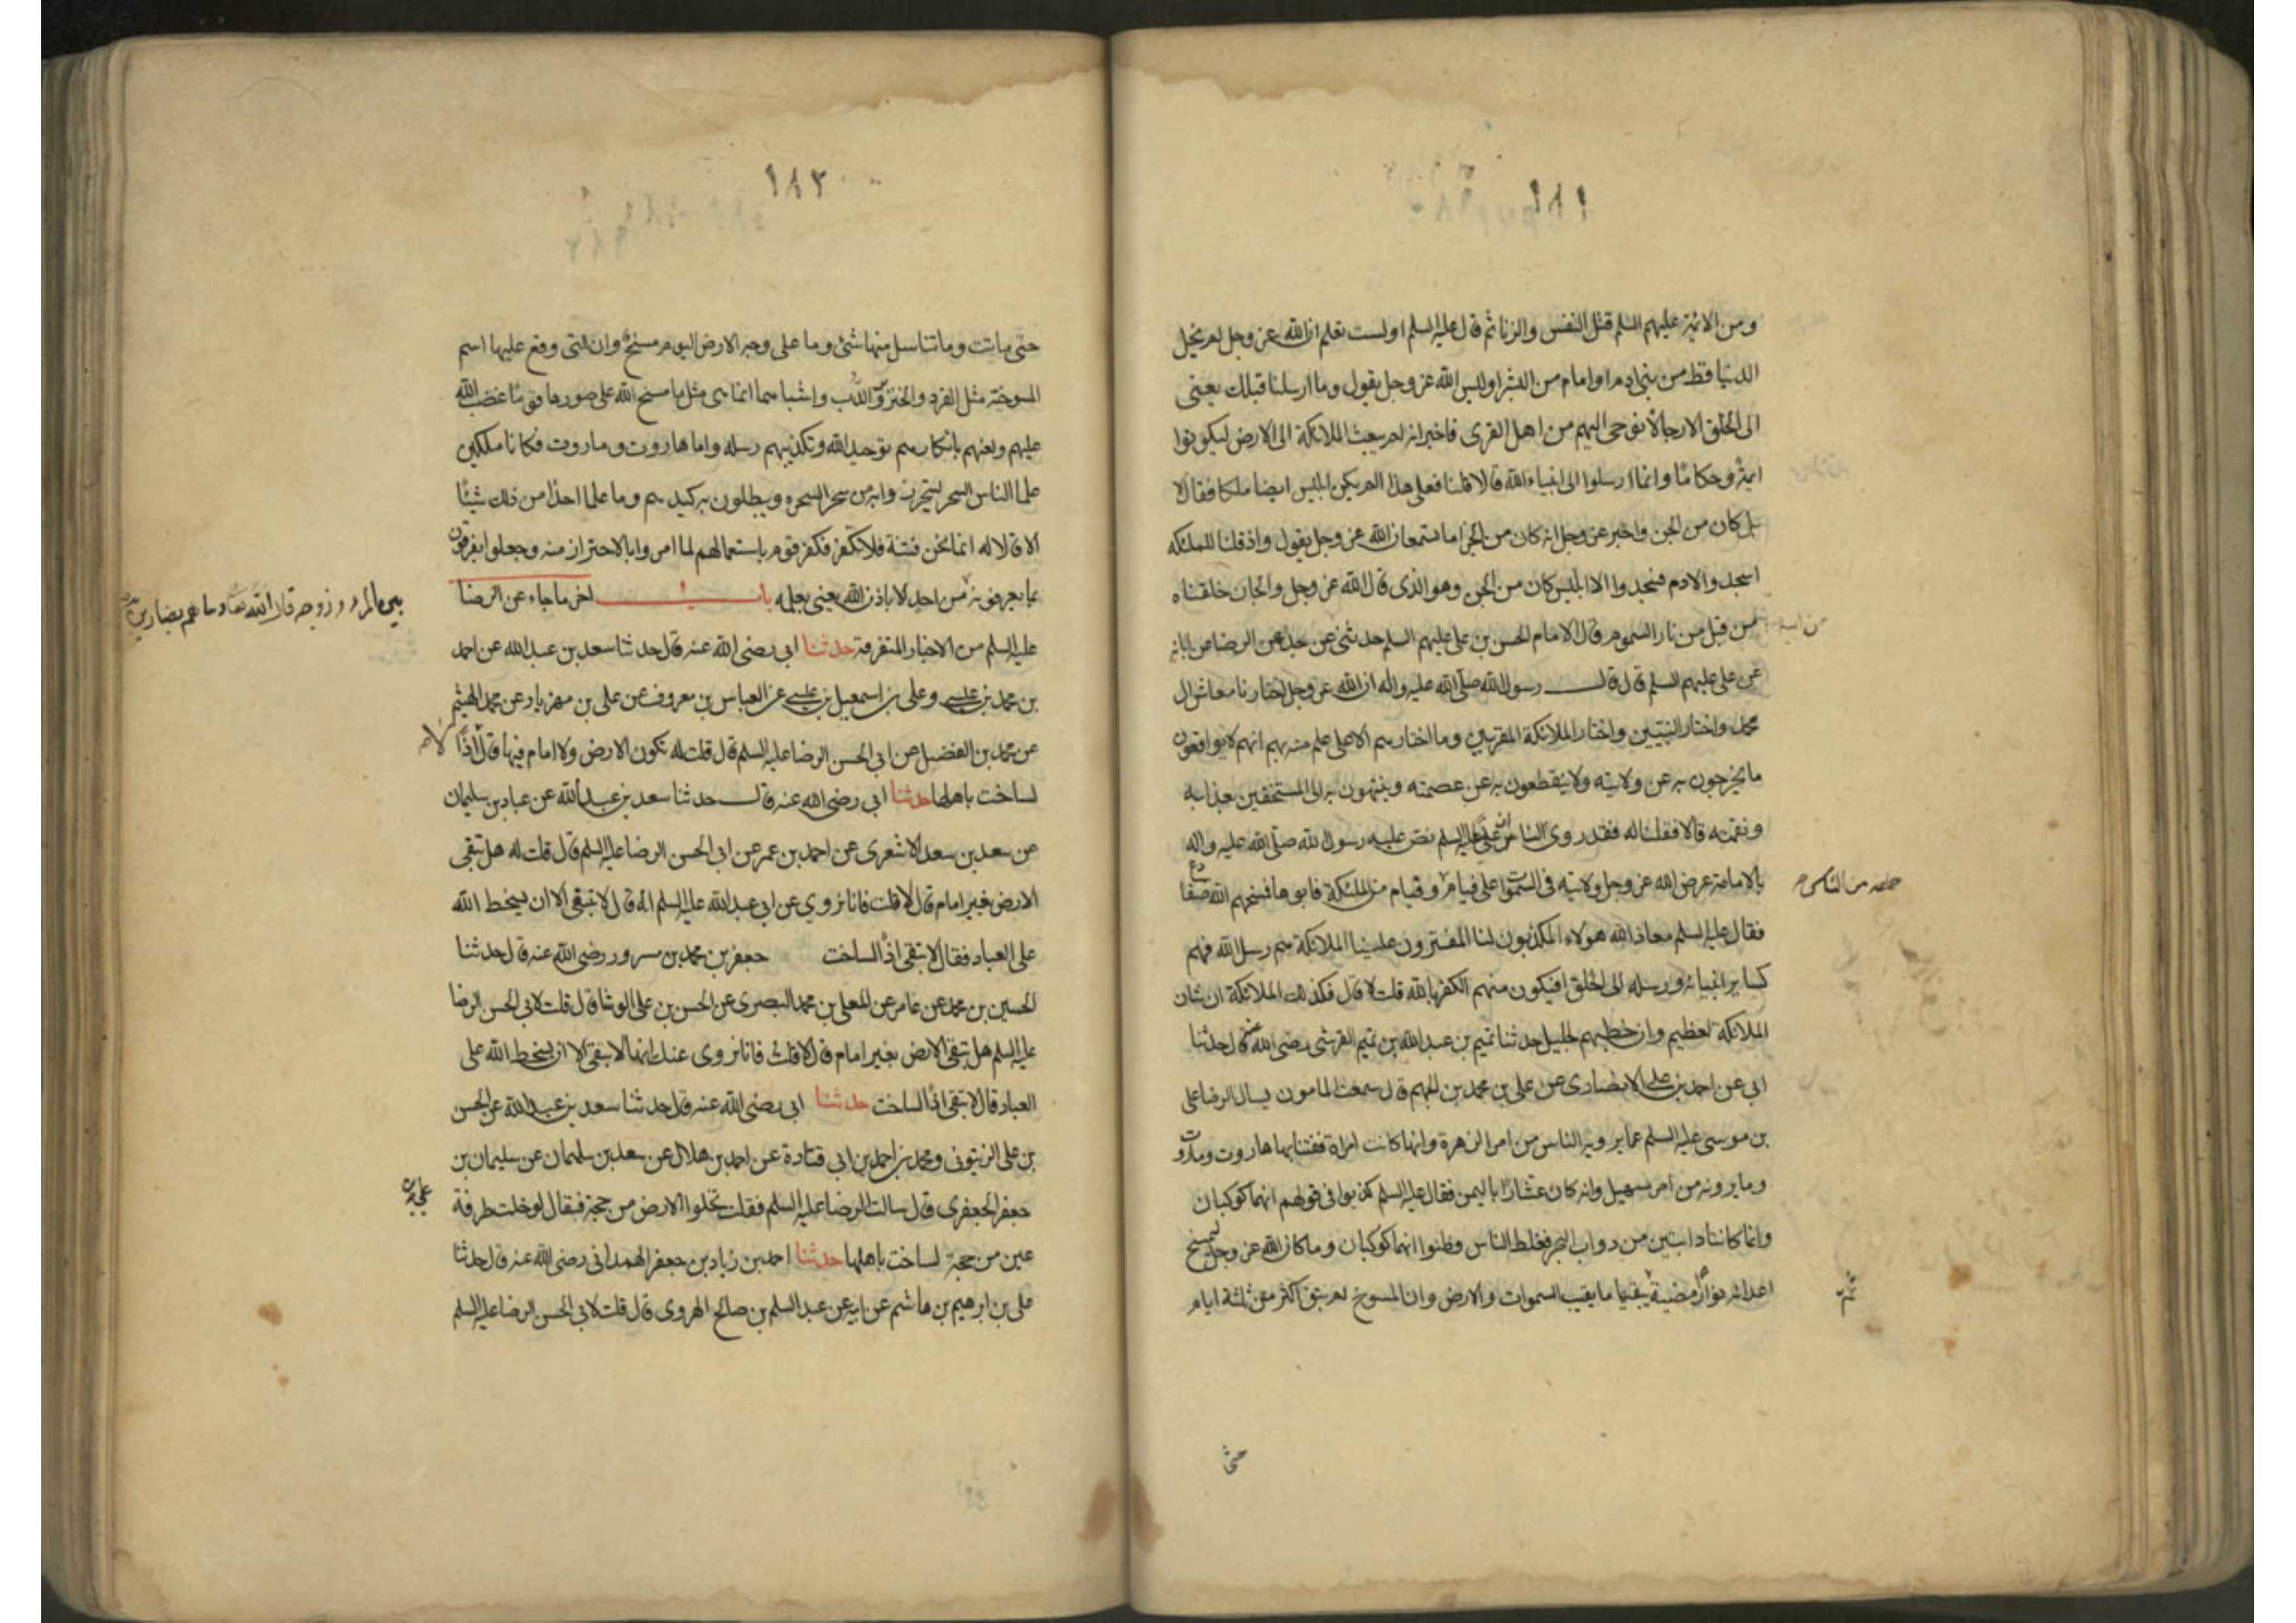 ١٨١
ومن الائمة عليهم السلم قتل النفس والزنا ثم قال عليه السلم اولست تعلم ان الله عز وجل لم يخل
الدنيا قط من نبى ادم او امام من البشر اوليس الله عز وجل يقول وما ارسلنا قبلك يعنى
الى الخلق الا رجالا نوحى اليهم من اهل القرى فاخبر انه لم يبعث الملائكة الى الارض ليكونوا
ايمة وحكاما وانما ارسلوا الى انبياء الله قالا قلنا فعلى هذا الم يكن ابليس ايضا ملكا فقال لا
بل كان من الجن واخبر عز وجل انه كان من الجن اما تسمعان الله عز وجل يقول واذ قلنا للملئكه
اسجدوا لادم فسجدوا الا ابليس كان من الجن وهو الذى قال الله عز وجل والجان خلقناه
من قبل من نار السموم قال الامام الحسن بن على عليهم السلم حدثنى عن جدى عن الرضا عن ابائه
عن على عليهم السلم قال قال رسول الله صلى الله عليه واله ان الله عز وجل اختارنا معاشر ال
محمد واختار النبيين واختار الملائكة المقربين وما اختارهم الا على علم منه بهم انهم لا يواقعون
ما يخرجون به عن ولايته ولا ينقطعون به عن عصمته وينتهون به الى المستحقين بعذابه
ونقمته قالا فقلنا له فقد روى لنا ان عليا عليه السلم نص عليه رسول الله صلى الله عليه واله
بالامامة عرض الله عز وجل ولايته فى السموات على فيام وفيام من الملئكة فابوها فمسخهم الله ضفادع
جماعه من الناس م
فقال عليه السلم معاذ الله هولاء المكذبون لنا المفترون علينا الملائكة هم رسل الله فهم
كساير انبيائه ورسله الى الخلق افيكون منهم الكفر بالله قلت لا قال فكذلك الملائكة ان شان
الملائكة لعظيم وان خطبهم لجليل حدثنا تميم بن عبد الله بن تميم القرشى رضى الله عنه قال حدثنا
ابى عن احمد بن على الانصارى عن على بن محمد بن الجهم قال سمعت المامون يسال الرضا على
بن موسى عليه السلم عما يرويه الناس من امر الزهرة وانها كانت امراة ففتنا بها هاروت وماروت
وما يرونه من امر سهيل وانه كان عشارا باليمن فقال عليه السلم كذبوا فى قولهم انهما كوكبان
وانما كانتا دابتين من دواب البحر فغلط الناس وظنوا انهما كوكبان وما كان الله عز وجل ليمسخ
اعدائه نوارا مضية يبقيها ما بقيت السموات والارض وان المسوخ لم يبق اكثر من ثلثة ايام
ثم
حتى
١٨٢
حتى ماتت وما تناسل منها شئ وما على وجه الارض اليوم مسخ وان التى وقع عليها اسم
المسوخية مثل القرد والخنزير والدب واشباهها انما هى مثل ما مسخ الله على صورها قوما غضب الله
عليهم ولعنهم بانكارهم توحيد الله وتكذيبهم رسله واما هاروت وماروت فكانا ملكين
علما الناس السحر ليتحرزوا به من سحر السحره ويبطلون به كيدهم وما علما احدا من ذلك شيئا
الا قالا له انما نحن فتنة فلا تكفر فكفر قوم باستعمالهم لما امروا بالاحتراز منه وجعلوا يفرقون
بما يعرفونه من احد الا باذن الله يعنى بعلمه باب اخر ما جاء عن الرضا
بين المرء وزوجه قال الله تعالى وما هم بضارين به
عليه السلم من الاخبار المتفرقة حدثنا ابى رضى الله عنه قال حدثنا سعد بن عبد الله عن احمد
بن محمد بن عيسى وعلى بن اسمعيل بن عيسى عن العباس بن معروف عن على بن مهزيار عن محمد الهيثم
عن محمد بن الفضيل عن ابى الحسن الرضا عليه السلم قال قلت له تكون الارض ولا امام فيها قال اذا
لا
لساخت باهلها حدثنا ابى رضى الله عنه قال حدثنا سعد بن عبد الله عن عباد بن سليمان
عن سعد بن سعد الاشعرى عن احمد بن عمر عن ابى الحسن الرضا عليه السلم قال قلت له هل تبقى
الارض بغير امام قال لا قلت فانا نروي عن ابى عبد الله عليه السلم انه قال لا تبقى الا ان يسخط الله
على العباد فقال لا تبقى اذا لساخت جعفر بن محمد بن مسرور رضى الله عنه قال حدثنا
الحسين بن محمد عن عامر عن المعلى بن محمد البصرى عن الحسن بن على الوشا قال قلت لابى الحسن الرضا
عليه السلم هل تبقى الارض بغير امام قال لا قلت فانا نروى عنك انها لا تبقى الا ان يسخط الله على
العباد قال لا تبقى اذا لساخت حدثنا ابى رضى الله عنه قال حدثنا سعد بن عبد الله عن الحسن
بن على الزيتونى ومحمد بن احمد بن ابى قتادة عن احمد بن هلال عن سعد بن سليمان عن سليمان بن
جعفر الجعفرى قال سالت الرضا عليه السلم فقلت تخلوا الارض من حجة فقال لو خلت طرفة
عين من حجة لساخت باهلها حدثنا احمد بن زياد بن جعفر الهمدانى رضى الله عنه قال حدثنا
على بن ابرهيم بن هاشم عن ابيه عن عبد السلم بن صالح الهروى قال قلت لابى الحسن الرضا عليه السلم